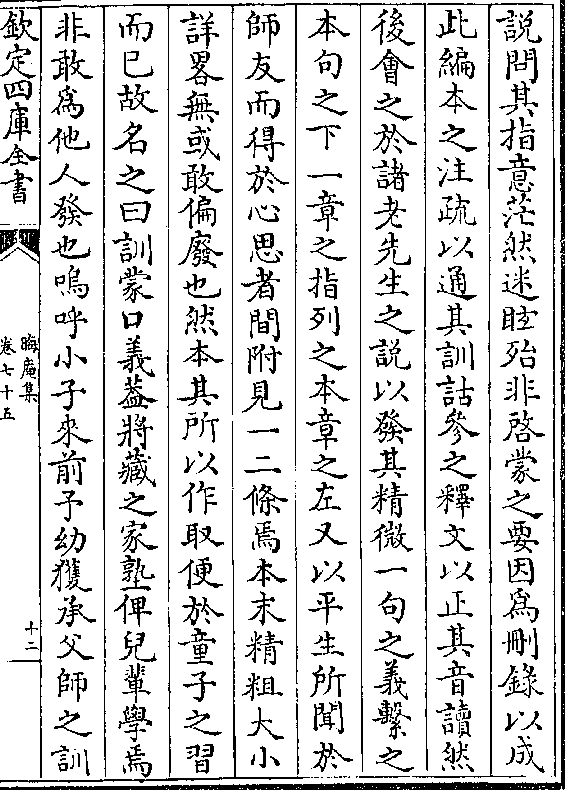 說問其指意茫然迷眩殆非啓蒙之要因爲刪錄以成
此編本之注疏以通其訓詁參之釋文以正其音讀然
後會之於諸老先生之說以發其精微一句之義繫之
本句之下一章之指列之本章之左又以平生所聞於
師友而得於心思者間附見一二條焉本末精粗大小
詳畧無或敢偏廢也然本其所以作取便於童子之習
而已故名之曰訓蒙口義葢將藏之家塾俾兒輩學焉
非敢爲他人發也嗚呼小子來前予幼獲承父師之訓
欽定四庫全書
晦庵集
卷七十五
十二